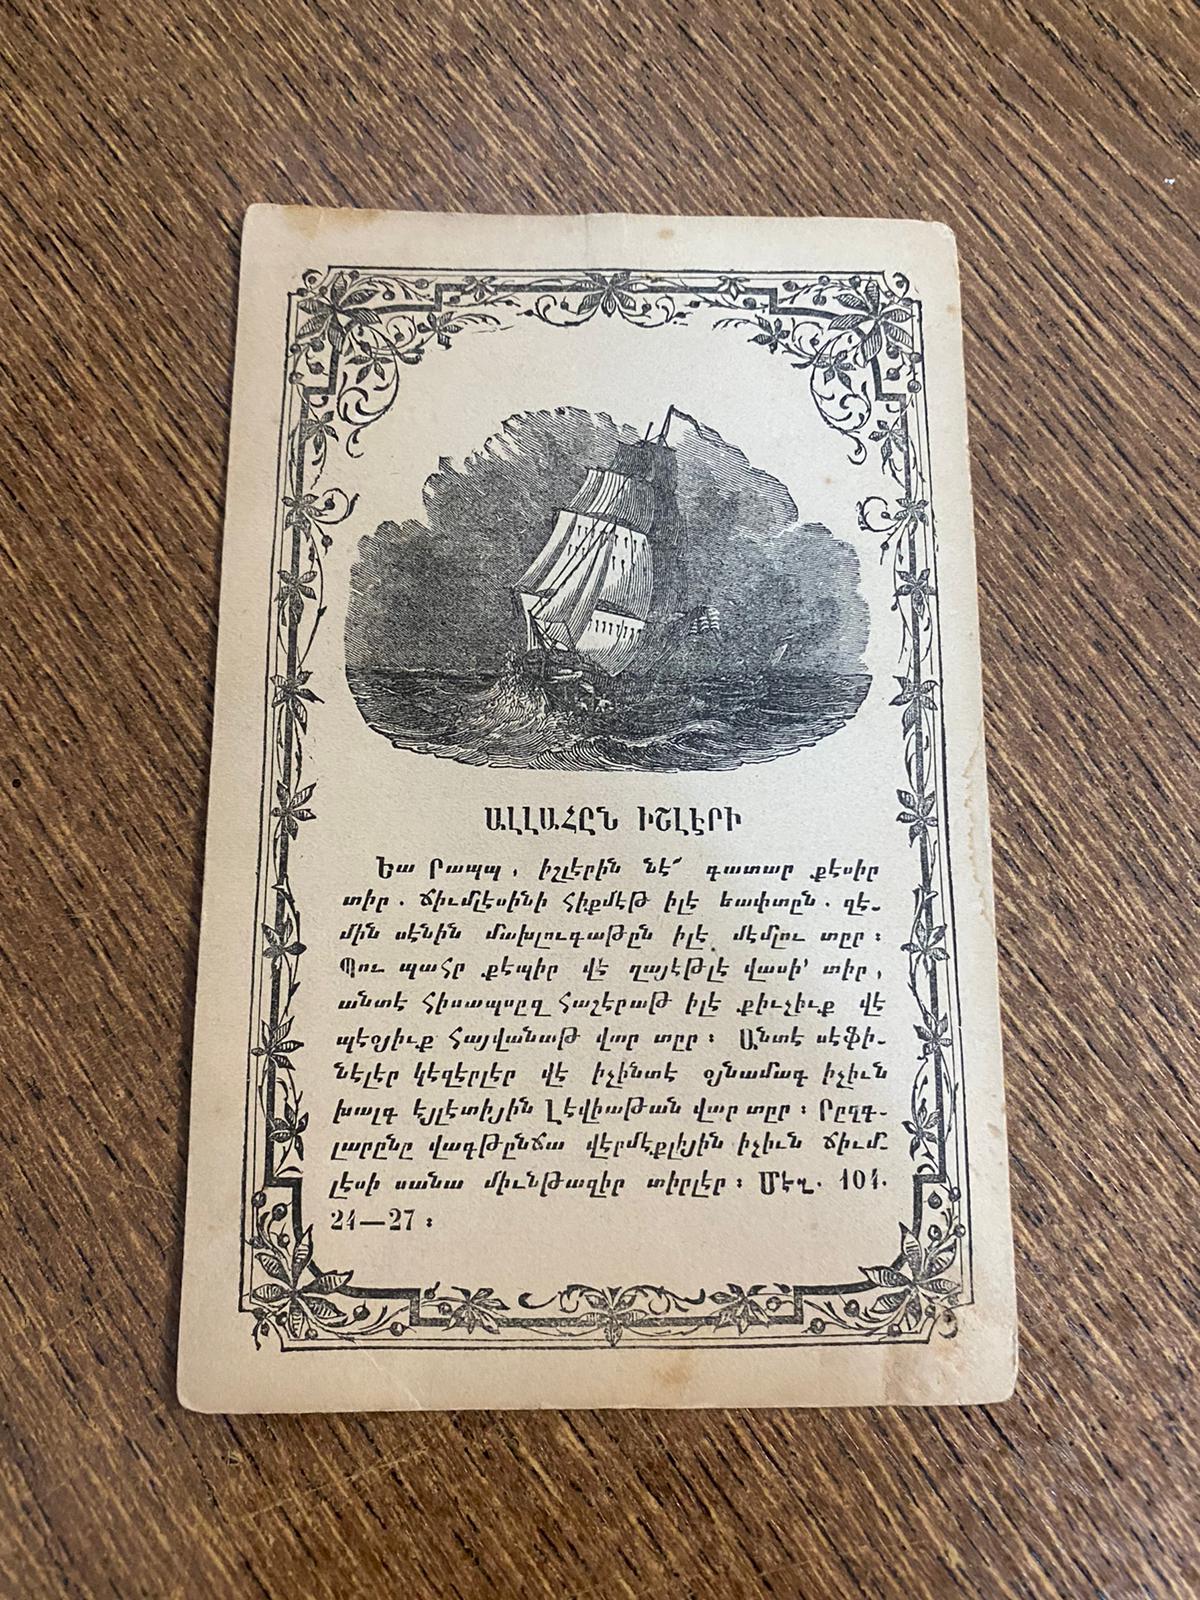 ԱԼԼԱՀԸՆ ԻՇԼԷՐԻ
Եա Րապպ, իշլէրին նէ՛ գատար քէսիր
տիր. ճիւմլէսինի հիքմէթ իլէ եափտըն. զէ-
մին սէնին մախլուգաթըն իլէ մէմլու տըր։
Պու պահր քէպիր վէ ղայէթլէ վասի՛ տիր,
անտէ հիսապսըզ հաշէրաթ իլէ քիւչիւք վէ
պէօյիւք հայվանաթ վար տըր։ Անտէ սէֆի-
նէլէր կէզէրլէր վէ իչինտէ օյնամագ իչիւն
խալգ էյլէտիյին Լէվիաթան վար տըր։ Րըզգ-
լարընը վագթընճա վէրմէքլիյին իչիւն ճիւմ-
լէսի սանա միւնթազիր տիրլէր։ Մէզ. 104.
24—27։